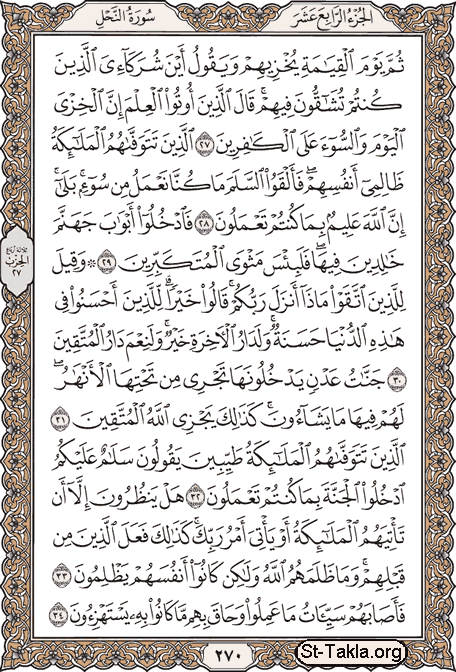 سُورَةُ النَّحْلِ
الجُزْءُ الرَّابِعَ عَشَرَ
ثُمَّ يَوْمَ الْقِيَامَةِ يُخْزِيهِمْ وَيَقُولُ أَيْنَ شُرَكَاءِيَ الَّذِينَ
كُنتُمْ تُشَاقُّونَ فِيهِمْ ۚ قَالَ الَّذِينَ أُوتُوا الْعِلْمَ إِنَّ الْخِزْيَ
الْيَوْمَ وَالسُّوءَ عَلَى الْكَافِرِينَ ٢٧ الَّذِينَ تَتَوَفَّاهُمُ الْمَلَائِكَةُ
ظَالِمِي أَنفُسِهِمْ ۖ فَأَلْقَوُا السَّلَمَ مَا كُنَّا نَعْمَلُ مِن سُوءٍ ۚ بَلَىٰ ۚ
إِنَّ اللَّهَ عَلِيمٌ بِمَا كُنتُمْ تَعْمَلُونَ ٢٨ فَادْخُلُوا أَبْوَابَ جَهَنَّمَ
خَالِدِينَ فِيهَا ۖ فَلَبِئْسَ مَثْوَى الْمُتَكَبِّرِينَ ٢٩ ۞ وَقِيلَ
لِلَّذِينَ اتَّقَوْا مَاذَا أَنزَلَ رَبُّكُمْ ۚ قَالُوا خَيْرًا ۗ لِّلَّذِينَ أَحْسَنُوا فِي
هَٰذِهِ الدُّنْيَا حَسَنَةٌ ۚ وَلَدَارُ الْآخِرَةِ خَيْرٌ ۚ وَلَنِعْمَ دَارُ الْمُتَّقِينَ
٣٠ جَنَّاتُ عَدْنٍ يَدْخُلُونَهَا تَجْرِي مِن تَحْتِهَا الْأَنْهَارُ ۖ
لَهُمْ فِيهَا مَا يَشَاءُونَ ۚ كَذَٰلِكَ يَجْزِي اللَّهُ الْمُتَّقِينَ ٣١
الَّذِينَ تَتَوَفَّاهُمُ الْمَلَائِكَةُ طَيِّبِينَ ۙ يَقُولُونَ سَلَامٌ عَلَيْكُمُ
ادْخُلُوا الْجَنَّةَ بِمَا كُنتُمْ تَعْمَلُونَ ٣٢ هَلْ يَنظُرُونَ إِلَّا أَن
تَأْتِيَهُمُ الْمَلَائِكَةُ أَوْ يَأْتِيَ أَمْرُ رَبِّكَ ۚ كَذَٰلِكَ فَعَلَ الَّذِينَ مِن
قَبْلِهِمْ ۚ وَمَا ظَلَمَهُمُ اللَّهُ وَلَٰكِن كَانُوا أَنفُسَهُمْ يَظْلِمُونَ ٣٣
فَأَصَابَهُمْ سَيِّئَاتُ مَا عَمِلُوا وَحَاقَ بِهِم مَّا كَانُوا بِهِ يَسْتَهْزِءُونَ ٣٤
ثلاثة أرباع
الحزب
٢٧
٢٧٠
St-Takla.org